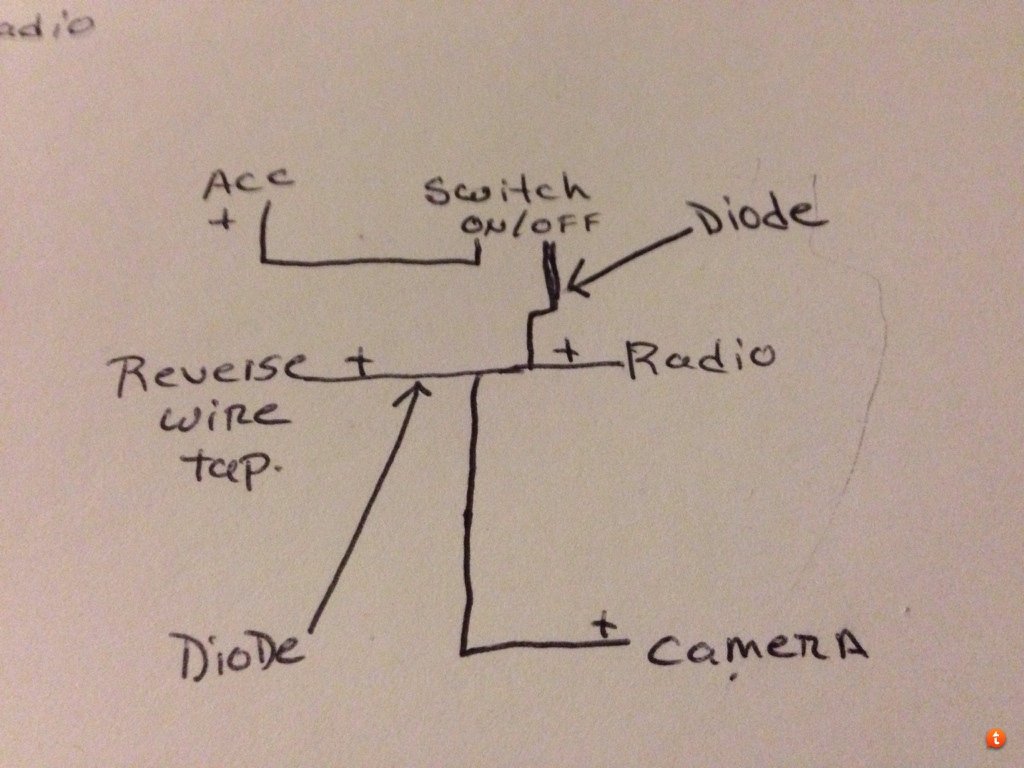 adio
Acc
+
Switch
ON/OFF
Diode
Reverse
wire
tap.
+
+
Radio
DioDe
+
CamerA
t